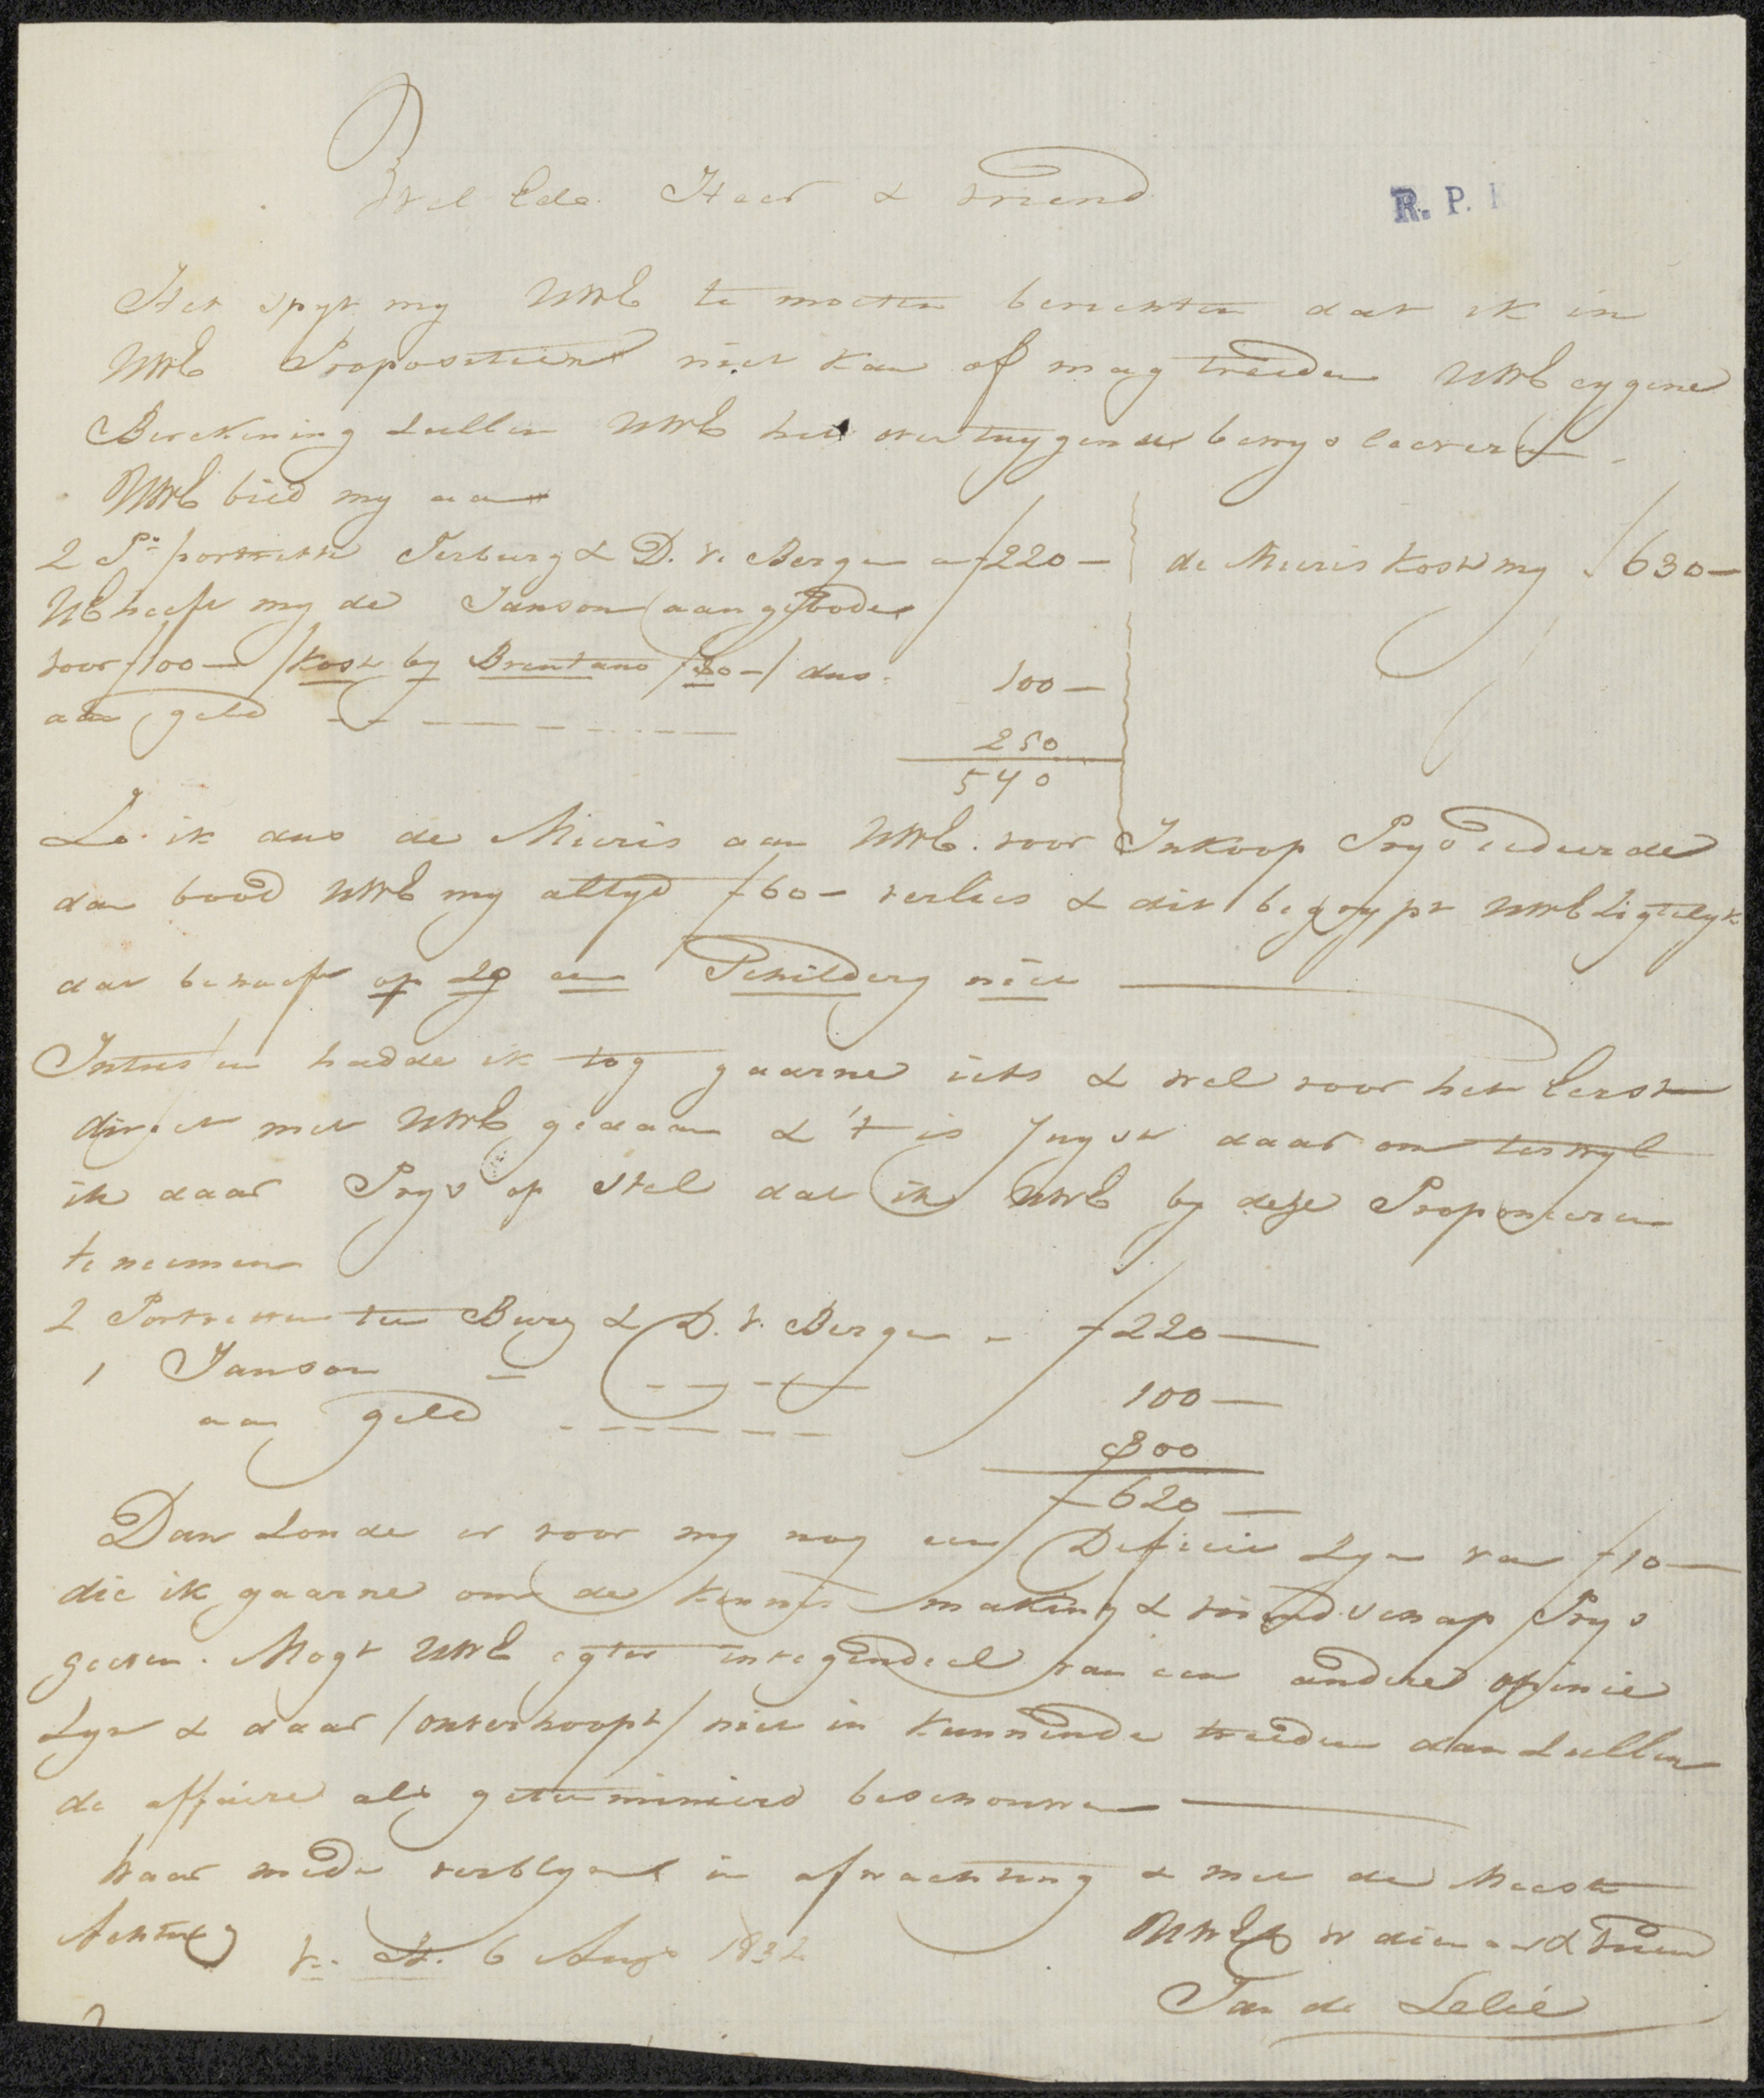 Wel Ede. Heer & vriend
R. P. K
Het spyt my UWE te moeten berichten dat ik in
UWE Propositien niet kan of mag treeden UWE eygene
Berekening zullen UWE het overtuygenste bewys leeveren.
UWE bied my aan
2 Ps. portrette Terburg & D. v. Bergen a f 220 — de Mieris kost my f 630 —
UE heeft my de Janson aangeboden
voor f 100 — / kost by Brentano f 80 — / dus 100 —
aan geld 250
540
Zo ik dus de Mieris aan UWE voor Inkoop Prys
dan bood UWE my altyd f 60 — verlies & dit begrypt UWE ligtelyk
dat behoeft op zo een Schildery niet
Intussen hadde ik tog gaarne iets & wel voor het Eerst
direct met UWE gedaan & 't is Juyst daarom terwyl
ik daar Prys op stel dat ik UWE by deze Proponeeren
te neemen
2 Portretten ter Burg & D. v. Bergen a f 220 —
1 Janson 100 —
aan geld 300
f 620 —
Dan Zonde er voor my nog een Deficit Zyn van f 10 —
die ik gaarne om de kennis making & vriendschap Prys
geeven. Mogt UWE egter integendeel van een andere opinie
Zyn & daar / onverhoopt / niet in kunnende treeden dan Zullen
de affaire als getermineerd beschouwen
Waar mede verblyve in afwachting & met de Meeste
Achting UWE dw dienaar & vriend
6 Augs 1832
Jan de Lelie